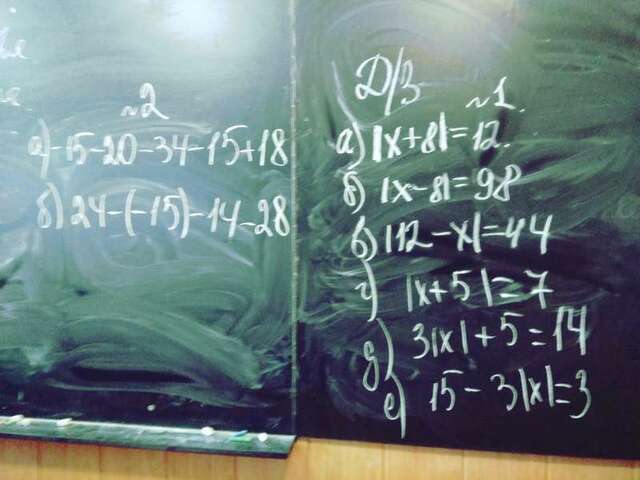 №2
а) -15-20-34-15+18
б) 24-(-15)-14-28
Д/З
№1.
а) |x+8|=12.
б) |x-8|=98
в) |12-x|=44
г) |x+5|=7
д) 3|x|+5=14
е) 15-3|x|=3